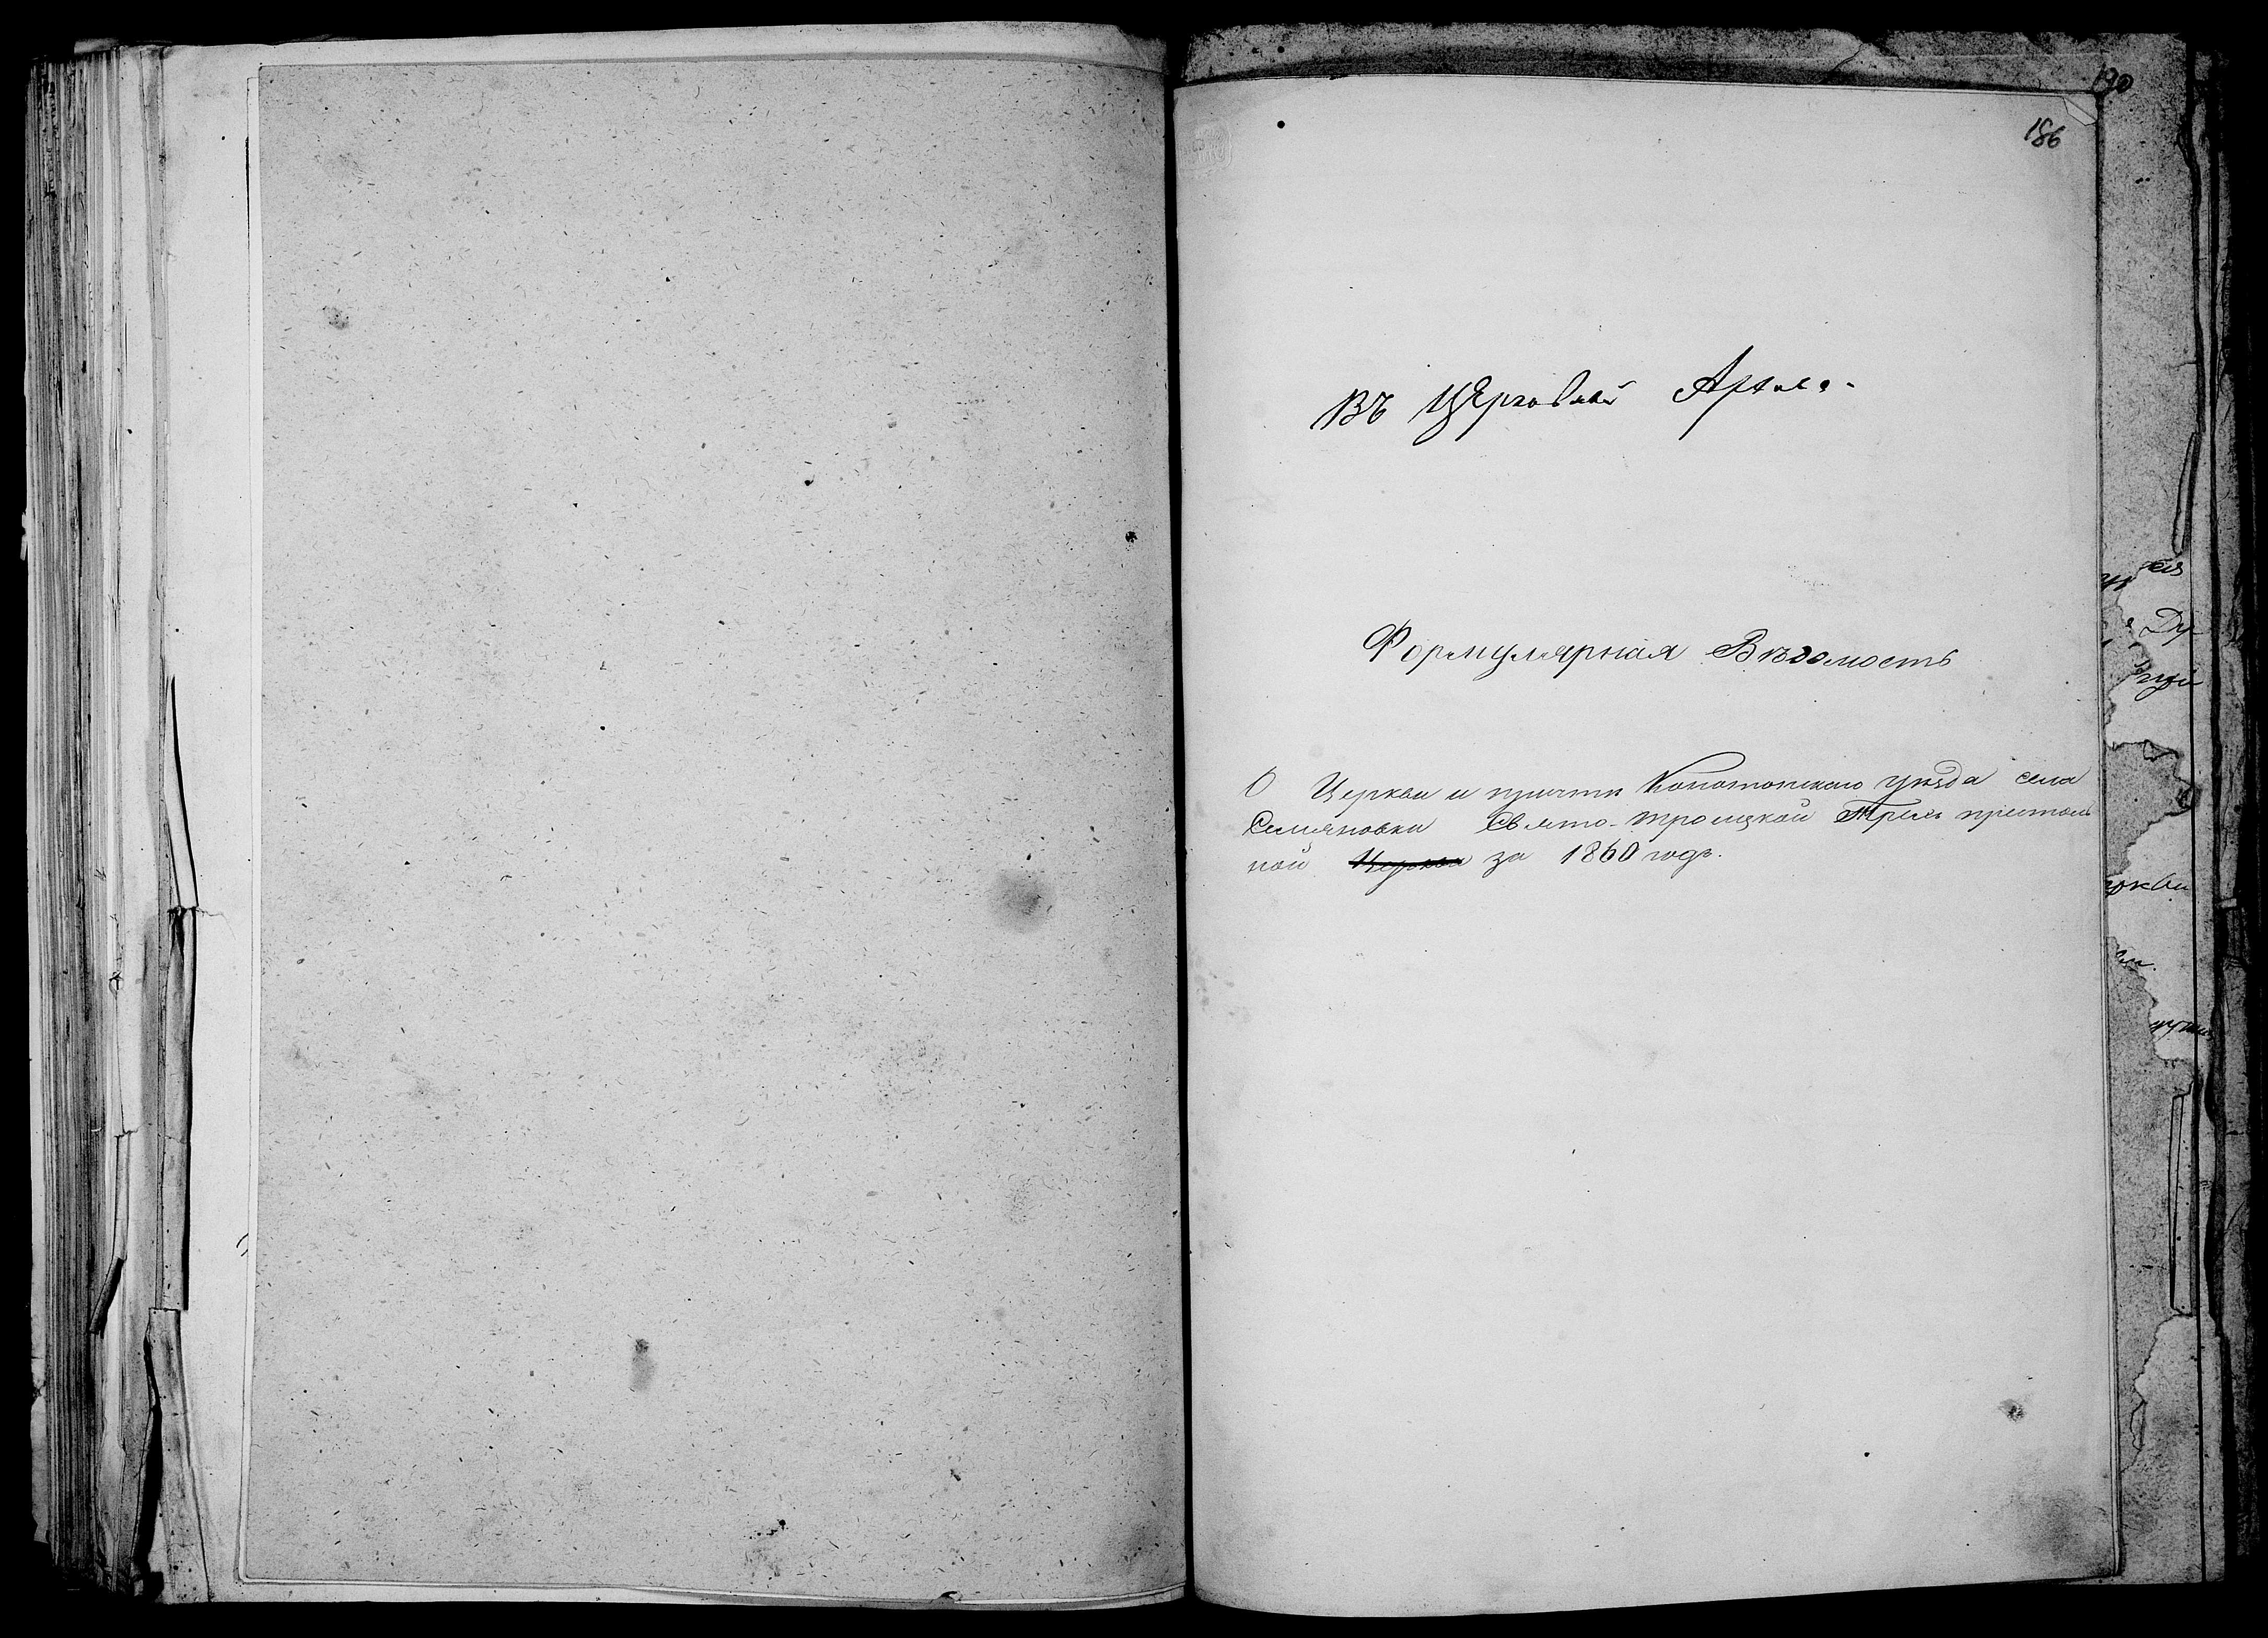 190
186
Въ Церковный Архивъ
Формулярная Вѣдомость
О Церкви и причтѣ Конотопскаго уѣзда села
Семяновки Свято-Троицкой Трехъ престоль
ной Церкви за 1860 годъ.